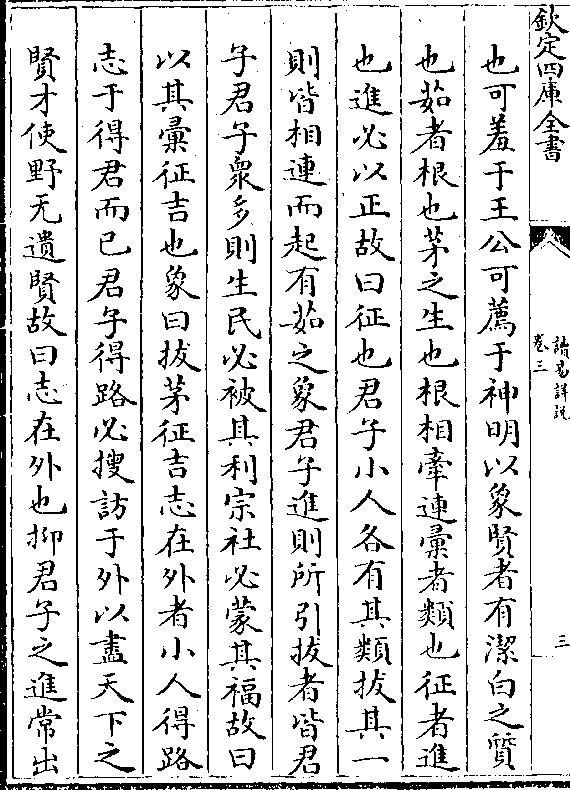 欽定四庫全書
讀易詳說
卷三
三
也可羞于王公可薦于神明以象賢者有潔白之質
也茹者根也茅之生也根相牽連彚者類也征者進
也進必以正故曰征也君子小人各有其類拔其一
則皆相連而起有茹之象君子進則所引拔者皆君
子君子衆多則生民必被其利宗社必蒙其福故曰
以其彚征吉也象曰拔茅征吉志在外者小人得路
志于得君而已君子得路必搜訪于外以盡天下之
賢才使野无遺賢故曰志在外也抑君子之進常出